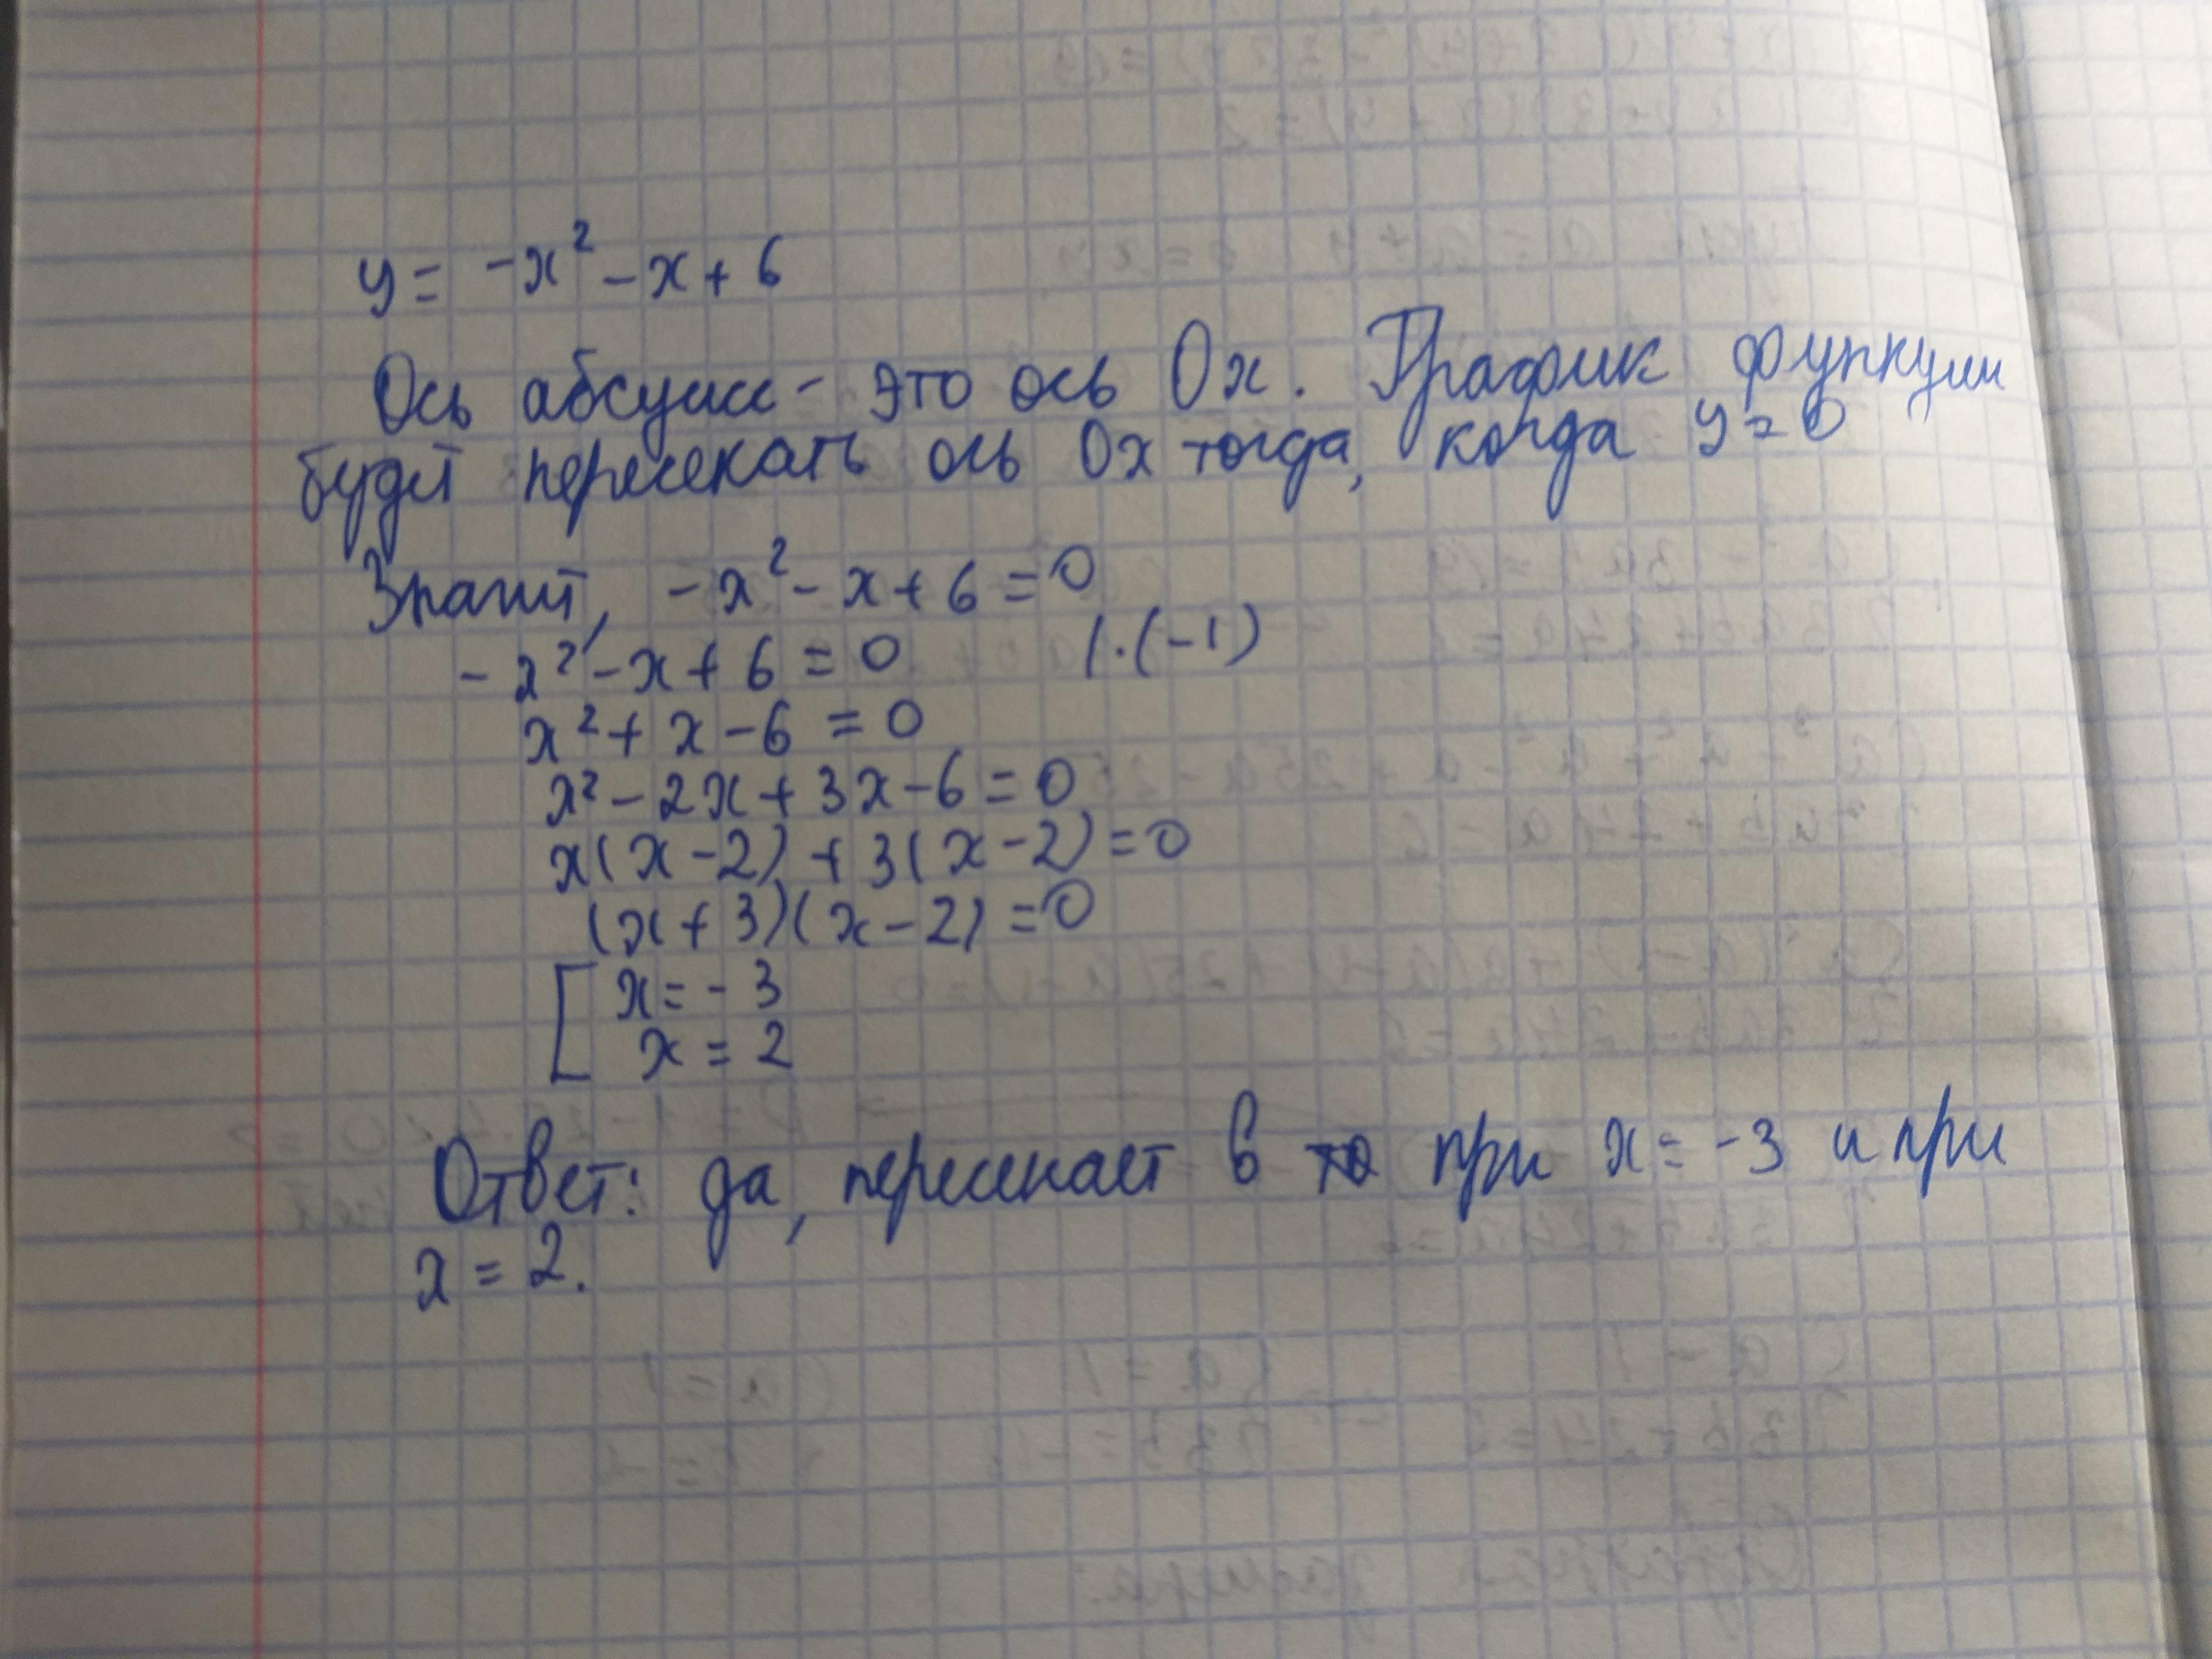 y = -x² - x + 6
Ось абсцисс - это ось Ox. График функции
будет пересекать ось Ox тогда, когда y = 0
Значит, -x² - x + 6 = 0
-x² - x + 6 = 0 | · (-1)
x² + x - 6 = 0
x² - 2x + 3x - 6 = 0
x(x - 2) + 3(x - 2) = 0
(x + 3)(x - 2) = 0
[ x = -3
x = 2
Ответ: да, пересекает в при x = -3 и при
x = 2.